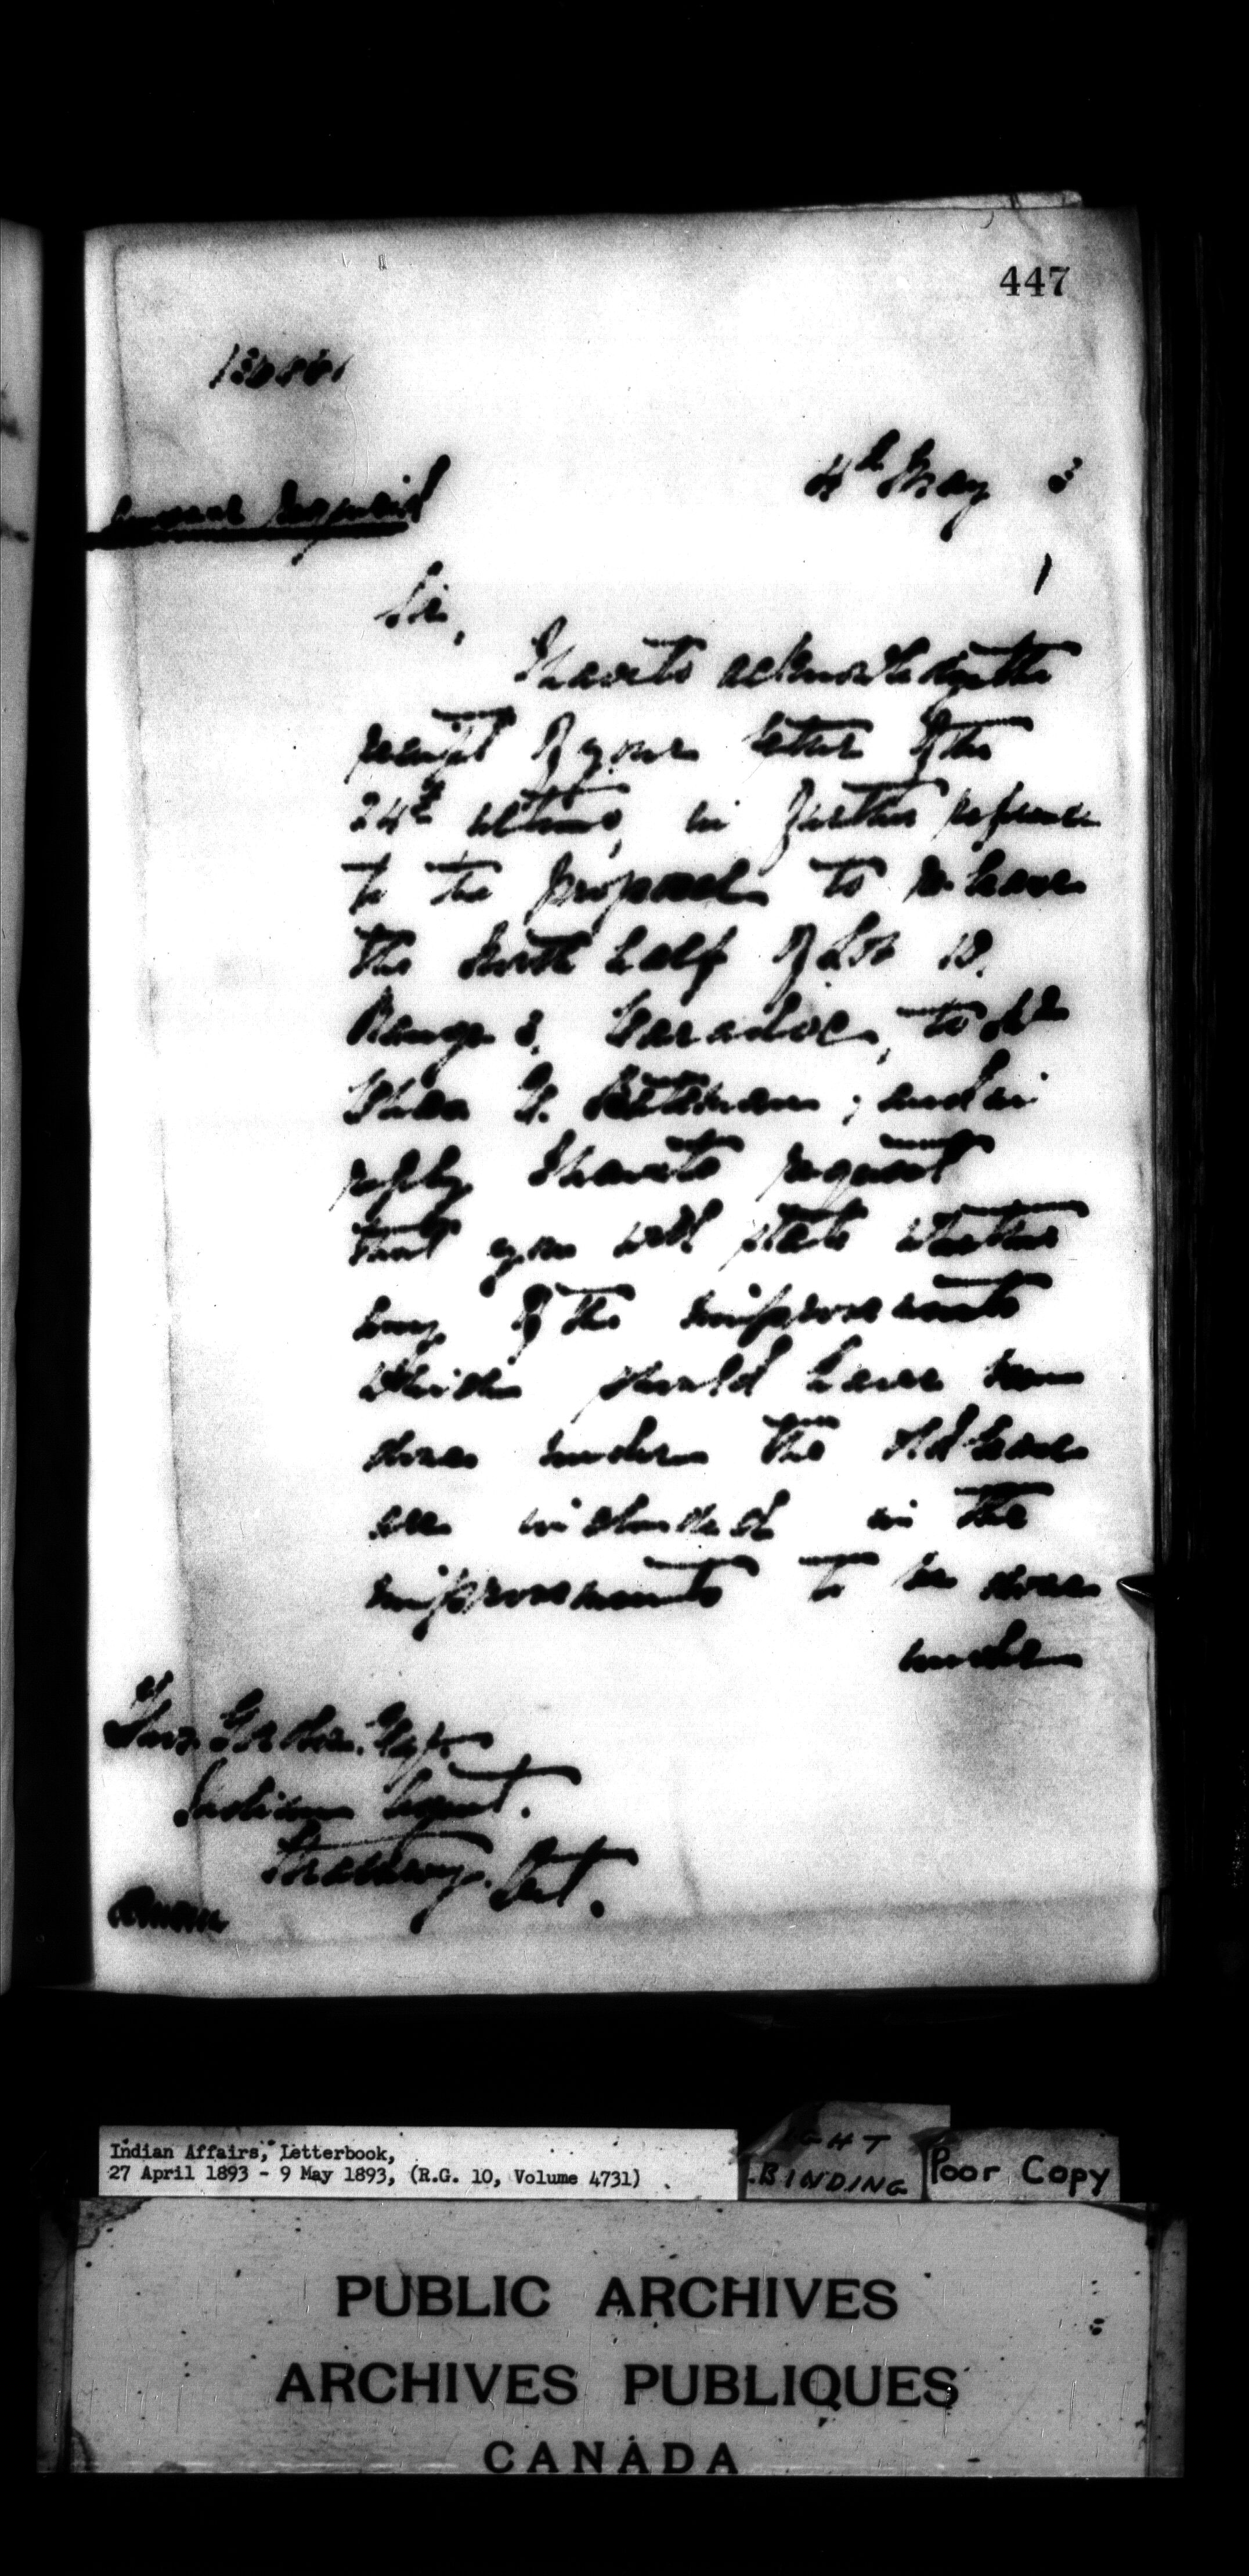 447
4th May 3
Sir,
I have to acknowledge the
receipt of your letter of the
24th ultimo, in further reference
to the proposal to re-lease
the North half of Lot 18.
Range 3. Caradoc, to Mr
G. Bateman; and in
reply I have to request
that you will state whether
any of the improvements
which should have been
done under the old lease
are included in the
improvements to be done
under
Thos. Gordon, Esq.
Indian Agent.
Strathroy. Ont.
Indian Affairs, Letterbook,
27 April 1893 - 9 May 1893, (R.G. 10, Volume 4731)
BINDING
Poor Copy
PUBLIC ARCHIVES
ARCHIVES PUBLIQUES
CANADA